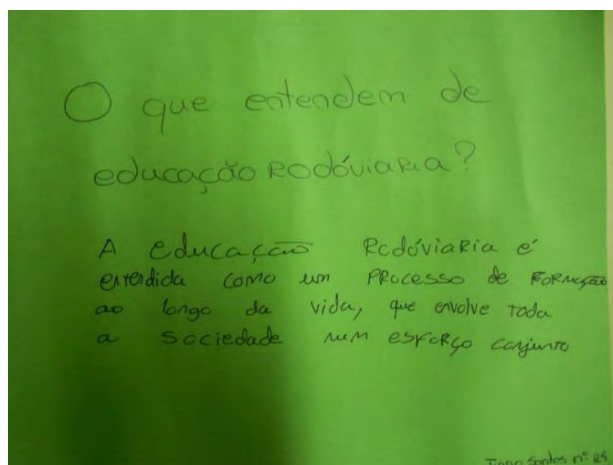 O que entendem de
educação Rodóviaria?
A educação Rodóviaria é
entendida como um processo de Formação
ao longo da vida, que envolve toda
a sociedade num esforço conjunto
Santos nº